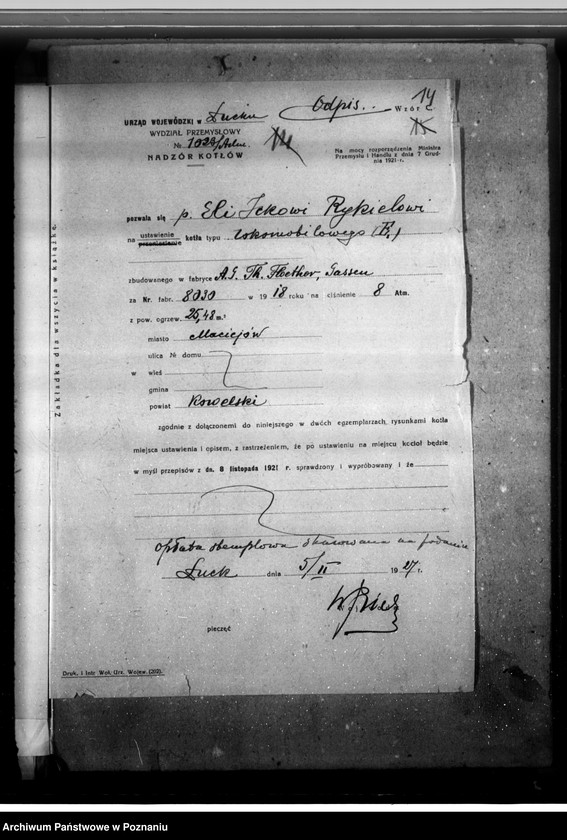 14
Odpis.
Wzór C.
15
URZĄD WOJEWÓDZKI w Łucku
WYDZIAŁ PRZEMYSŁOWY
№ 1022/
NADZÓR KOTŁÓW
Na mocy rozporządzenia Ministra
Przemysłu i Handlu z dnia 7 Grud-
nia 1921 r.
pozwala się p. Eli Ickowi Rykielowi
na ustawienie przeniesienie kotła typu lokomobilowego
zbudowanego w fabryce A.G. Th. Flöther, Gassen
za Nr. fabr. 8030 w 1918 roku na ciśnienie 8 Atm.
z pow. ogrzew. 25,48 m.²
miasto Maciejów
ulica № domu
w wieś
gmina
powiat Kowelski
zgodnie z dołączonemi do niniejszego w dwóch egzemplarzach, rysunkami kotła
miejsca ustawienia i opisem, z zastrzeżeniem, że po ustawieniu na miejscu kocioł będzie
w myśl przepisów z dn. 8 listopada 1921 r. sprawdzony i wypróbowany i że
opłata stemplowa skasowana na podaniu
Łuck dnia 5/II 1927 r.
pieczęć
Druk. i Intr. Wok. Urz. Wojew. (202).
Zakładka dla wszycia w książkę.
Archiwum Państwowe w Poznaniu